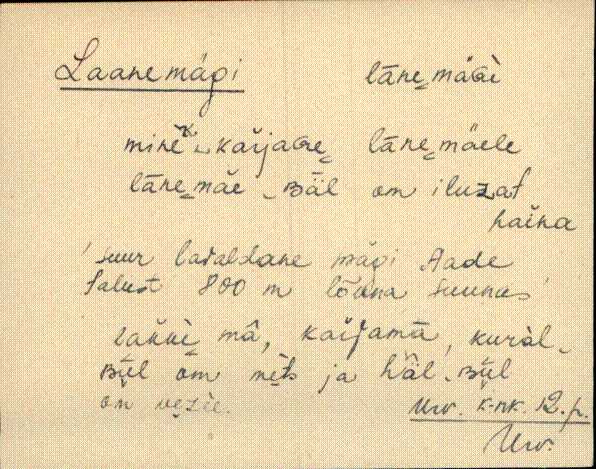 Laanemägi lāne̮mäGi
mine̮ᴋ kaŕjaGe̮ lāne̮mäele
lāne̮mäe‿Bäl om iluzat
haina
'suur laialdane mägi Aade
talust 800 m lõuna suunas'
mâ, kaŕjamā,
Bül om me̮ts ja häl‿Bül
om ve̮zi̮e.
Urv. k-nk. 12. p.
Urv.